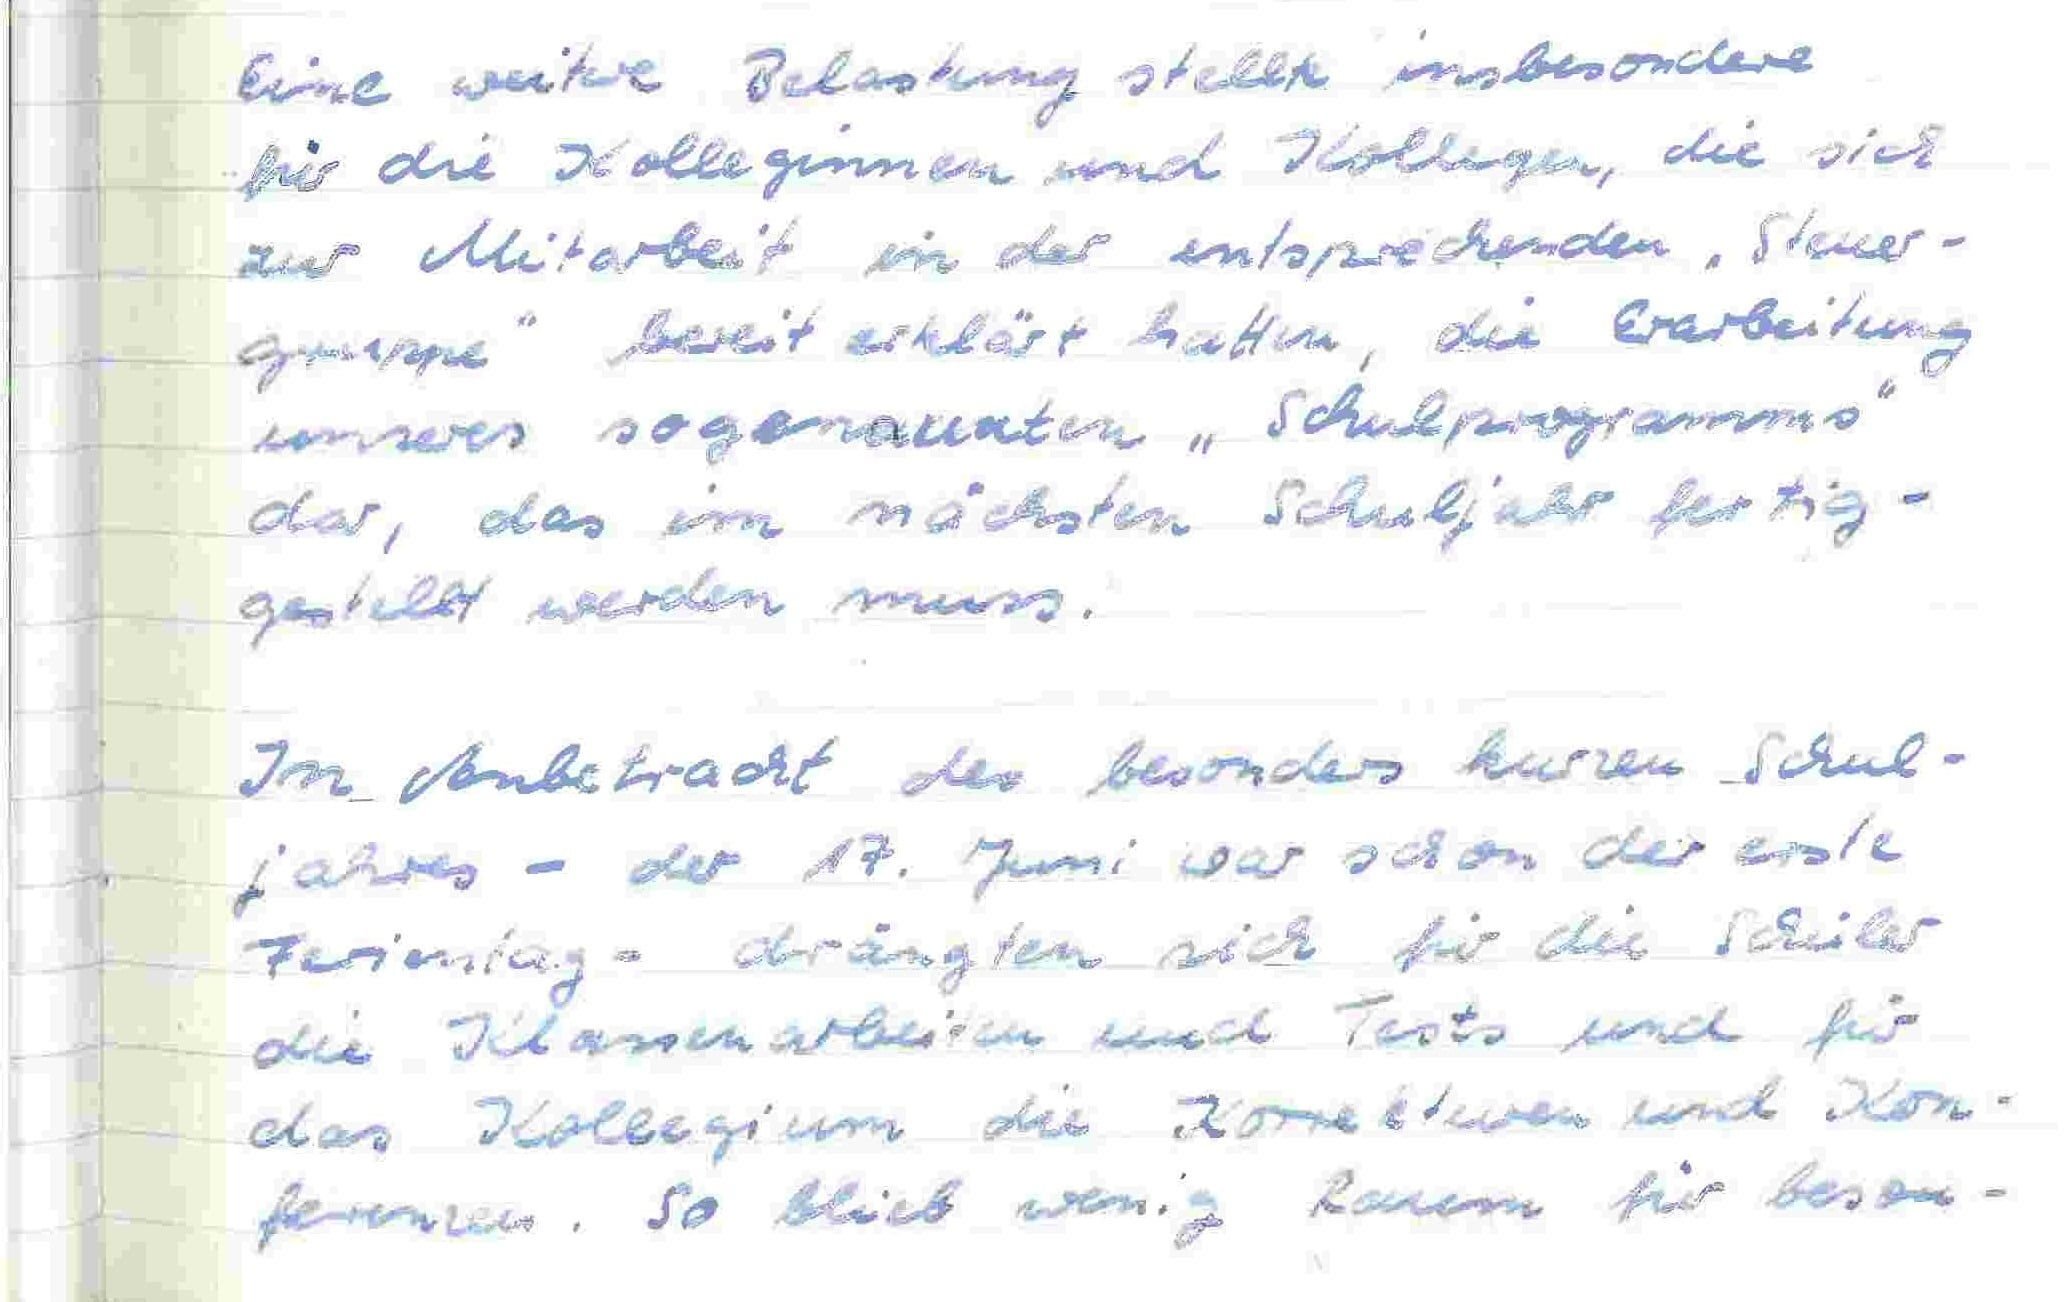 Eine weitere Belastung stellte insbesondere
für die Kolleginnen und Kollegen, die sich
zur Mitarbeit in der entsprechenden „Steuer-
gruppe“ bereit erklärt hatten, die Erarbeitung
unseres sogenannten „Schulprogramms“
dar, das im nächsten Schuljahr fertig-
gestellt werden muss.
In Anbetracht des besonders kurzen Schul-
jahres - der 17. Juni war schon der erste
Ferientag - drängten sich für die Schüler
die Klassenarbeiten und Tests und für
das Kollegium die Korrekturen und Kon-
ferenzen. So blieb wenig Raum für beson-